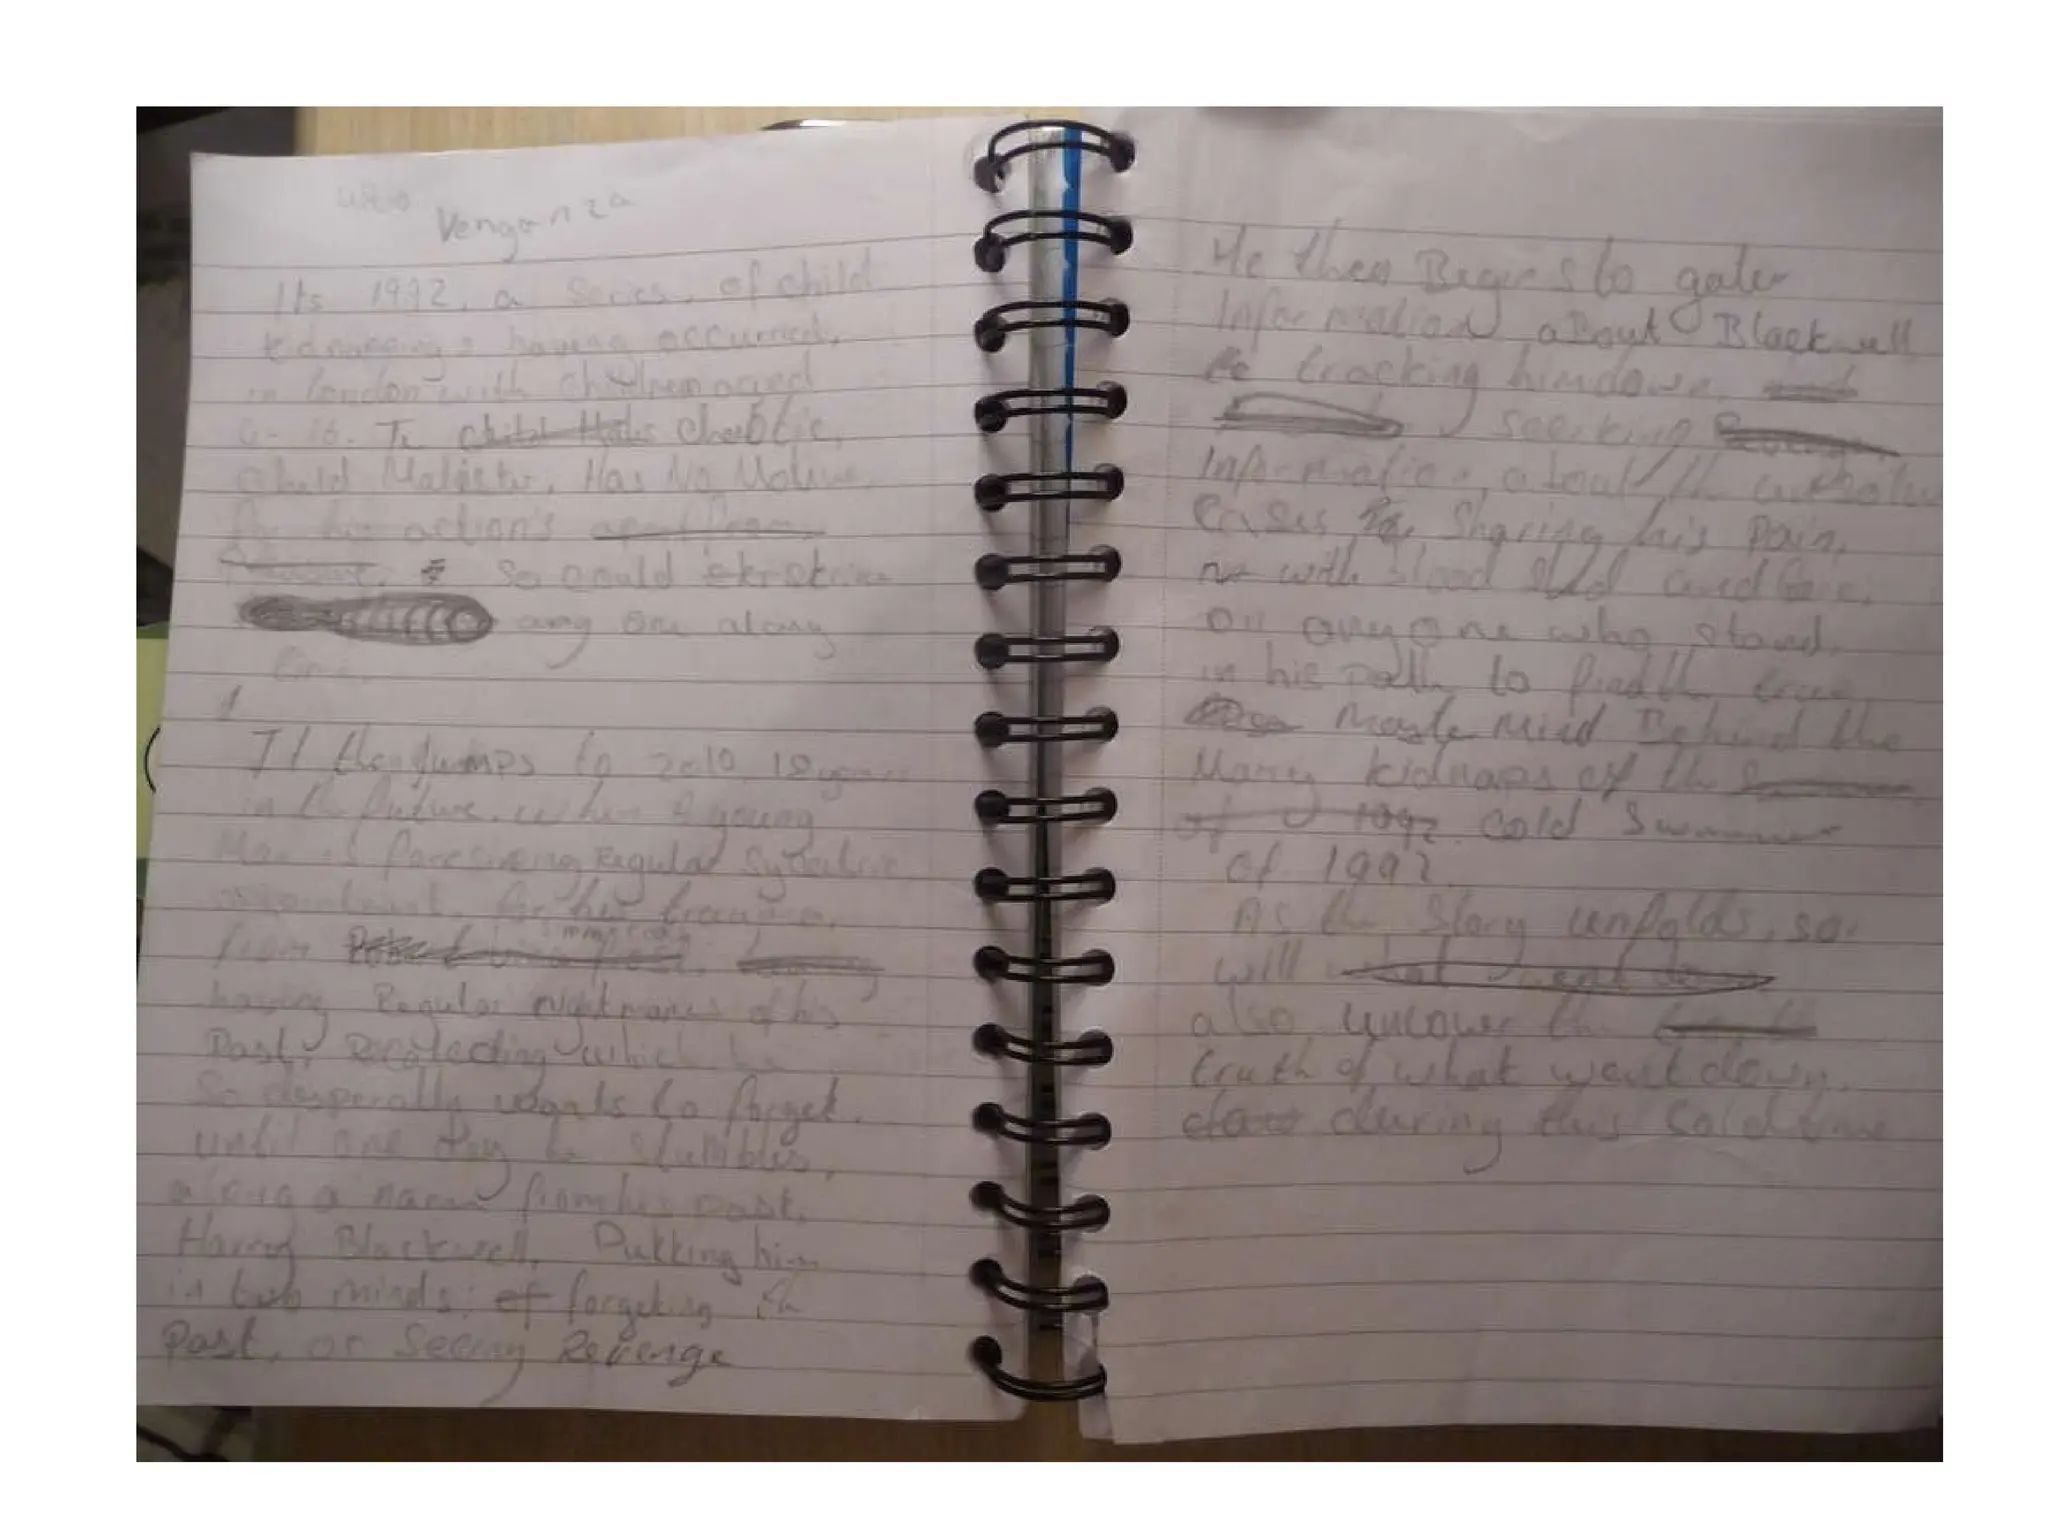 Venganza
Its 1992, a series, of child
kidnappings having occurred,
in london with children aged
6-16. The child chaotic,
child Has No Motive,
for his action's apart from
So could strike
any one along
time
It then jumps to 2010, 18 years
in the future, when a young
Man is Regular
appointment, for his trauma,
from
having Regular nightmares of his
Past, which he
So desperatly wants to forget,
until one day he stumbles,
along a name from his past,
Harry Blackwell, Putting him
in two minds: of forgeting the
Past, or Seeing Revenge
He then Begins to gater
Information about Blackwell
tracking him down, and
seeking
Information about the
Cases Sharing his Pain,
with blood shed
on anyone who stand,
in his path to find the true
Master Mind Behind the
Many kidnaps of the Summer
of 1992 cold Summer
of 1992.
As the Story unfolds, so
will what went down
also uncover the truth
truth of what went down,
during this Cold time